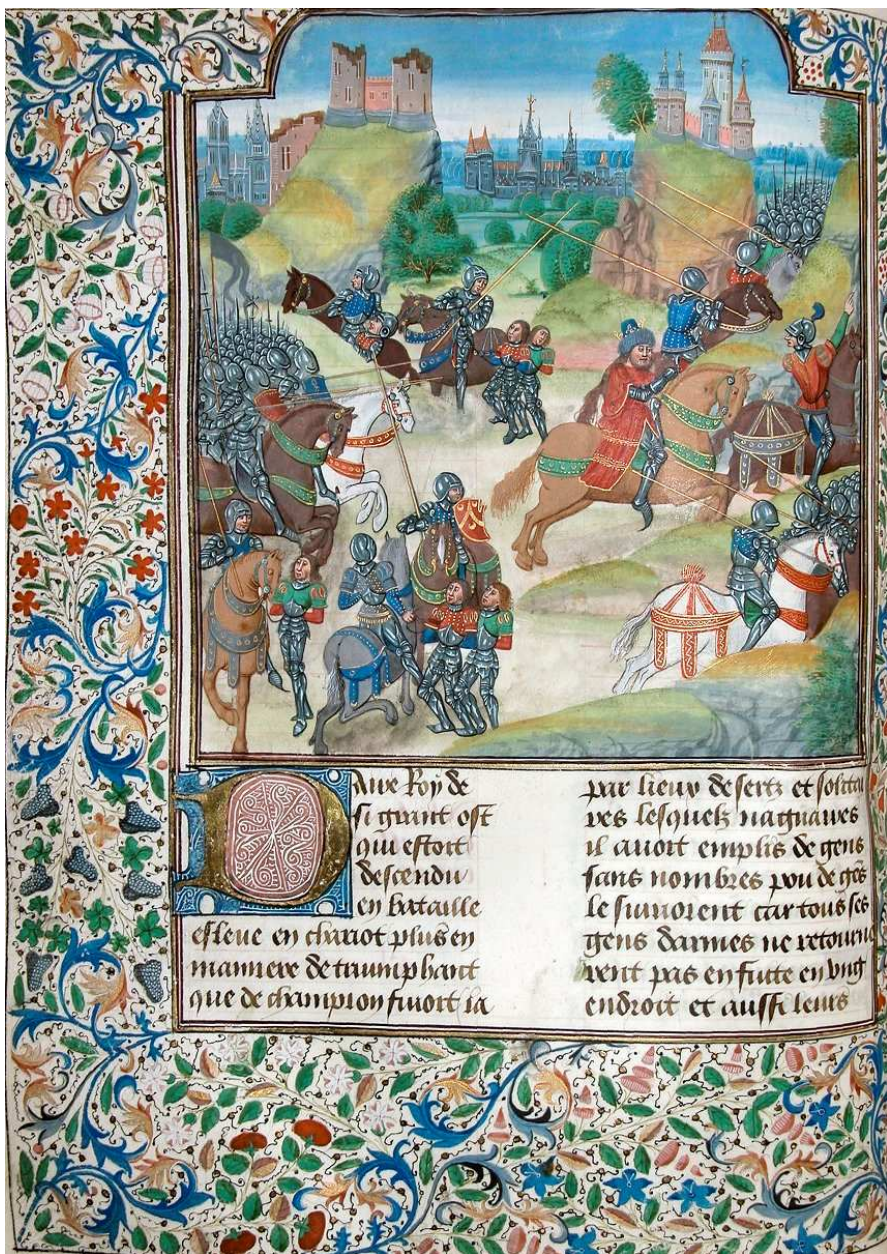 Daire Roy de
si grant ost
qui estoit
descendu
en bataille
esleve en chariot plus en
manniere de triumphant
que de champion fuioit la
par lieux desertz et solitai
res lesquelz nagaires
il avoit emplis de gens
sans nombres pou de gẽs
le suivoient car tous ses
gens darmes ne retourne
rent pas en fuite en ung
endroit et aussi leurs